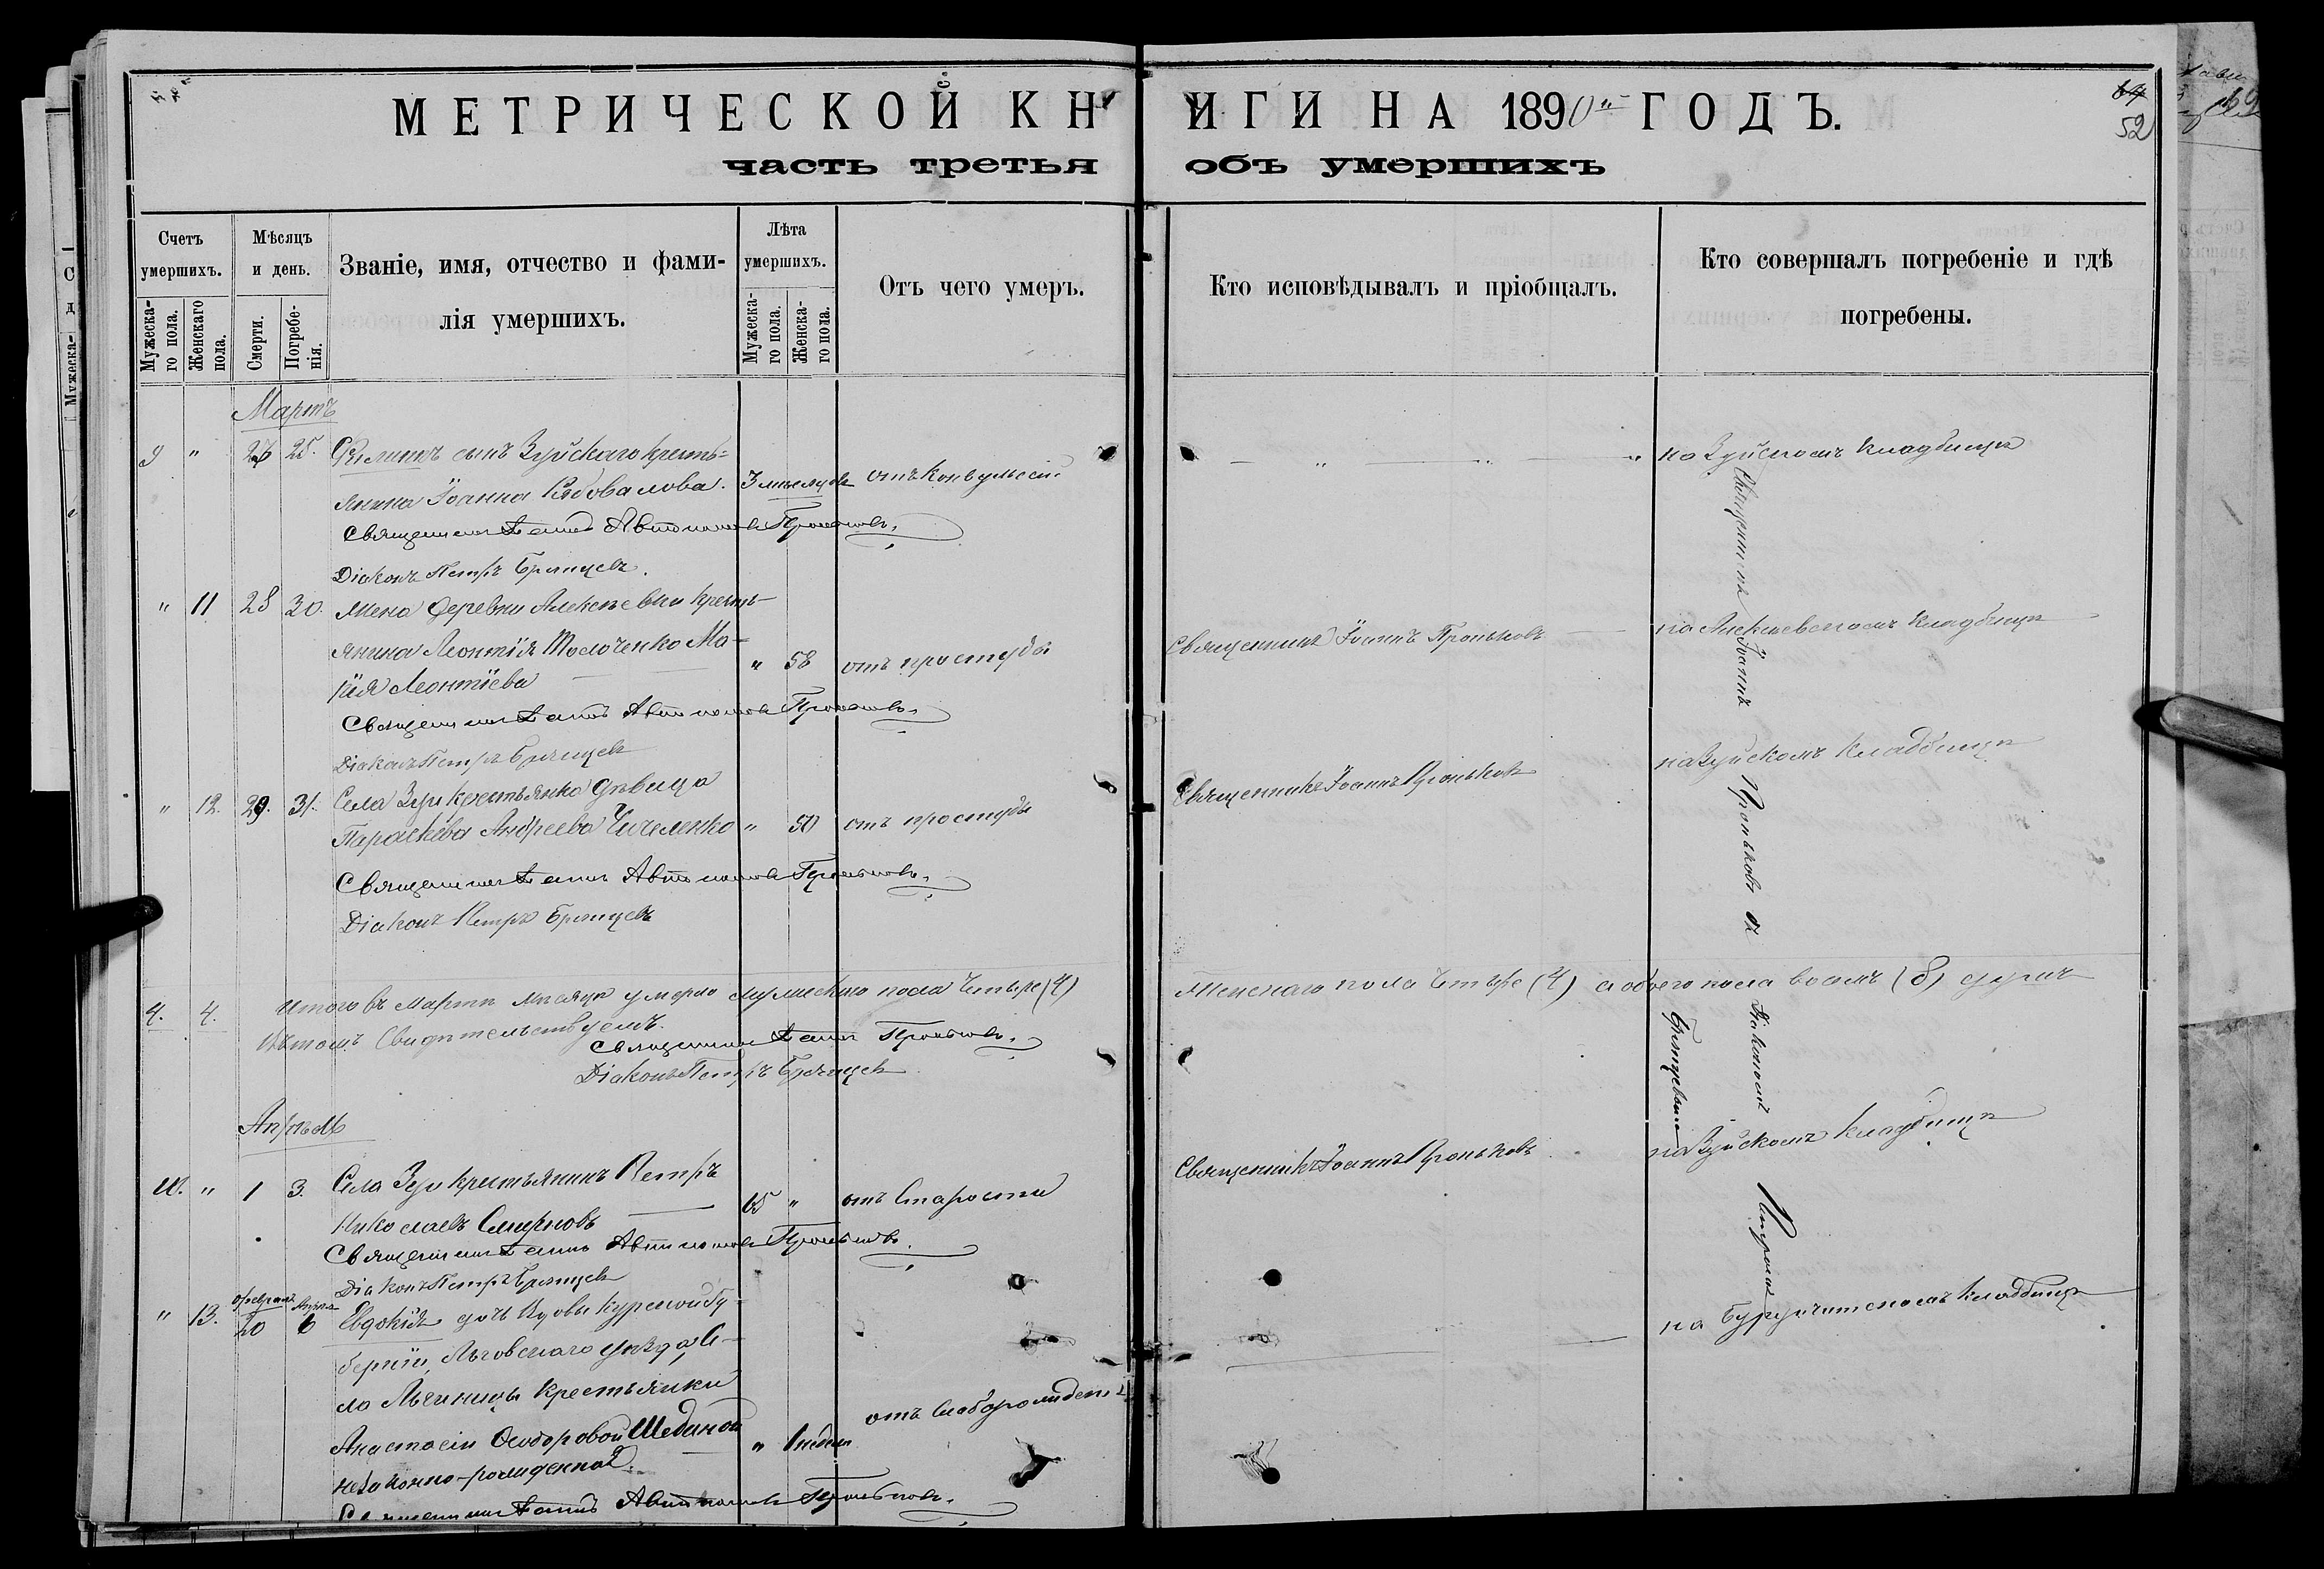 МЕТРИЧЕСКОЙ КНИГИ НА 1890й ГОДЪ.
часть третья объ умершихъ
52
Счетъ умершихъ.
Мужеска-
го пола.
Женскаго
пола.
Мѣсяцъ
и день.
Смерти.
Погребе-
нія.
Званіе, имя, отчество и фами-
лія умершихъ.
Лѣта
умершихъ.
Мужеска-
го пола.
Женска-
го пола.
Отъ чего умеръ.
Кто исповѣдывалъ и пріобщалъ.
Кто совершалъ погребеніе и гдѣ
погребены.
Мартъ
9 " 25. Филиппъ сынъ Зуйскаго кресть=
янина Іоанна 3 мѣсяцовъ отъ конвульсій
на Зуйскомъ кладбищѣ
Священникъ Іоаннъ Автономовъ Проньковъ.
Діаконъ Петръ Брянцевъ.
" 11 28 30. Жена деревни Алексѣевки кресть-
янина Леонтія Толоченко Ма-
рія Леонтіева " 58 отъ простуды
Священникъ Іоаннъ Проньковъ
на Алексѣевскомъ кладбищѣ
Священникъ Іоаннъ Автономовъ Проньковъ.
Діаконъ Петръ Брянцевъ
" 12. 29. 31. Села Зуи крестьянка дѣвица
Параскева Андреева " 50 отъ простуды
Священникъ Іоаннъ Проньковъ
на Зуйскомъ кладбищѣ
Священникъ Іоаннъ Автономовъ Проньковъ.
Діаконъ Петръ Брянцевъ
4. 4. Итого въ Мартѣ мѣсяцѣ умерло мужеского пола четыре (4)
Женскаго пола четыре (4) а обоего пола восемь (8) душъ
Въ томъ свидѣтельствуемъ.
Священникъ Іоаннъ Проньковъ.
Діаконъ Петръ Брянцевъ
Апрѣль
10. " 1 3. Села Зуи крестьянинъ Петръ
Николаевъ Смирновъ 65 " отъ Старости
Священникъ Іоаннъ Проньковъ
на Зуйскомъ кладбищѣ
Священникъ Іоаннъ Автономовъ Проньковъ.
Діаконъ Петръ Брянцевъ
" 13. Февраля 20 Апрѣля 6 Евдокія дочь вдовы Курской гу-
берніи, Льговскаго уѣзда, Се-
ла крестьянки
Анастасіи Ѳеодоровой
незаконно-рожденная. " 1 недѣли отъ слаборожденія
кладбищѣ
Священникъ Іоаннъ Автономовъ Проньковъ.
Священникъ Іоаннъ Проньковъ съ Діакономъ Петромъ
Брянцевымъ